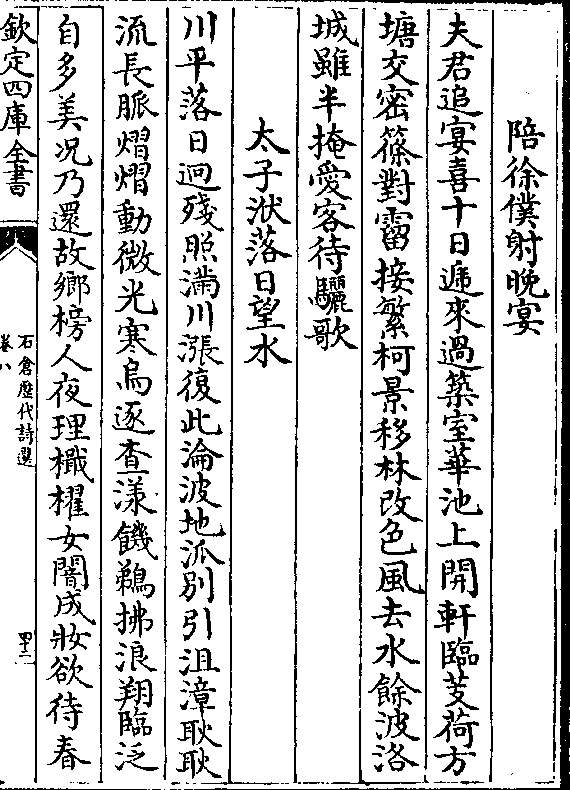 陪徐僕射晚宴
夫君追宴喜十日遞來過築室華池上開軒臨芰荷方
塘交密篠對霤接繁柯景移林改色風去水餘波洛
城雖半掩愛客待驪歌
太子洑落日望水
川平落日迥殘照滿川漲復此淪波地派別引沮漳耿耿
流長脈熠熠動微光寒烏逐查漾饑鵜拂浪翔臨泛
自多美况乃還故鄉榜人夜理檝櫂女闇成妝欲待春
欽定四庫全書
石倉歷代詩選
卷八
四十二